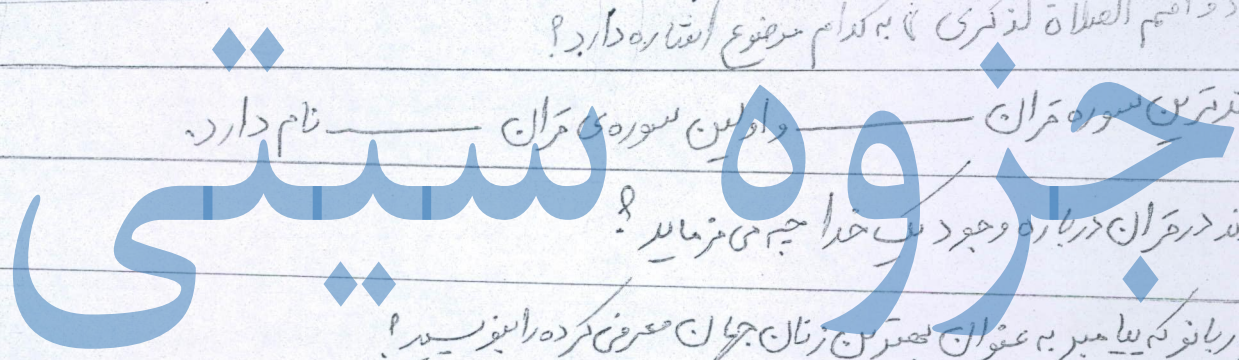 و اقم الصلاة لذکری» به کدام موضوع اشاره دارد؟
سوره قران ــــــــ و اولین سوره‌ی قران ــــــــ نام دارد.
در قران درباره وجود یک خدا چه می فرماید؟
که پیامبر به عنوان بهترین زنان جهان معرفی کرده را بنویسید؟
جزوه سیتی